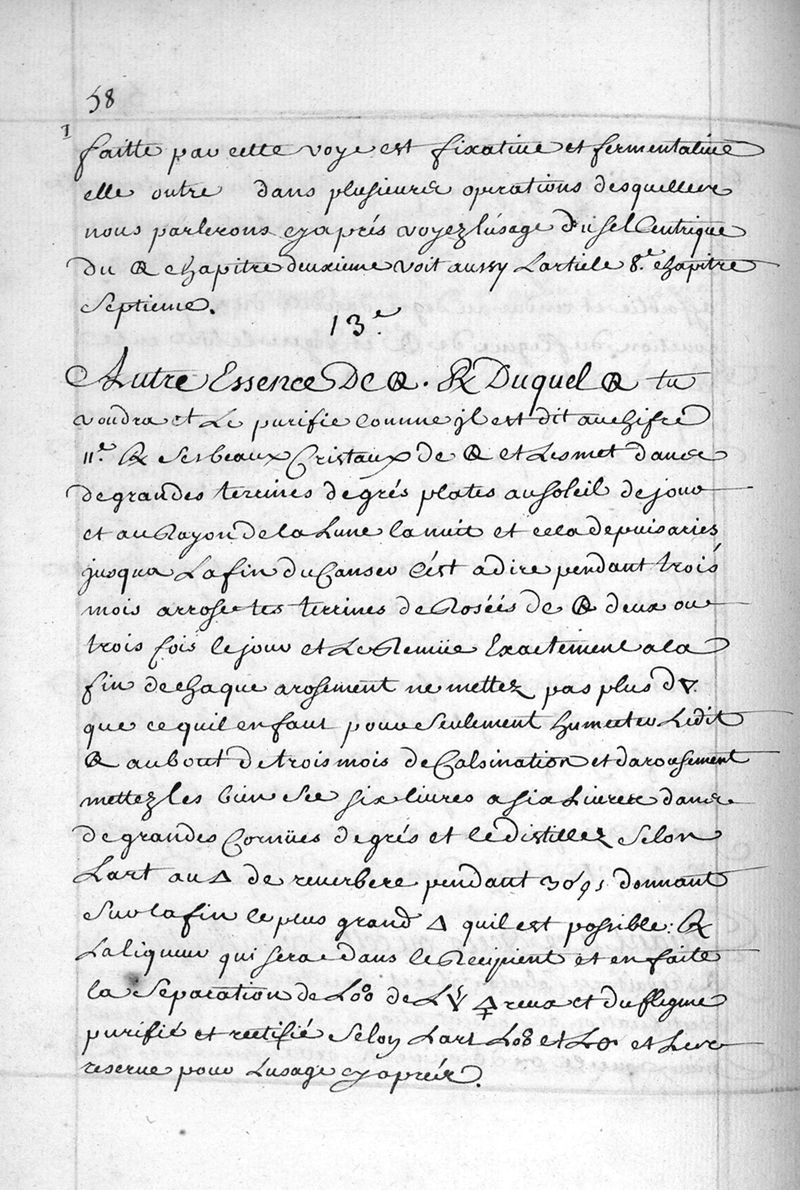 58
1
faitte par cette voye est fixative et fermentative
elle outre dans plusieures operations desquelleire
nous parlerons cy aprés voyez lusage du sel Centrique
Du 🜕 chapitre deuxieme voit aussy Larticle 8.e chapitre
Septieme.
13.e
Autre Essence De 🜕. ℞ Duquel 🜕 tu
voudra et Le purifie comme jl est dit au chifre
11.e ℞ ses beaux Cristaux de 🜕 et Les met dans
de grandes terrines de grés plates au soleil de jour
et au Rayon de la Lune la nuit et cela depuis aries
jusqua La fin du Canser C'est a dire pendant trois
mois arrose tes terrines de Roséés de 🜕 deux ou
trois fois le jour et Le Remüe Exactement a la
fin de chaque arosement ne mettez pas plus d🜄.
que ce quil en faut pour seulement humecter Ledit
🜕 au bout de trois mois de Calsination et darousement
mettez les bien sec six livres a six Livres dans
de grandes Cornües de grés et le distillez Selon
Lart au 🜂 de reverbere pendant donnant
Sur la fin le plus grand 🜂 quil est possible: ℞
La liqueur qui sera dans le Recipient et en faite
la Separation de et du flegme
purifié et rectifié Selon Lart et
reserve pour L'usage cy aprés.